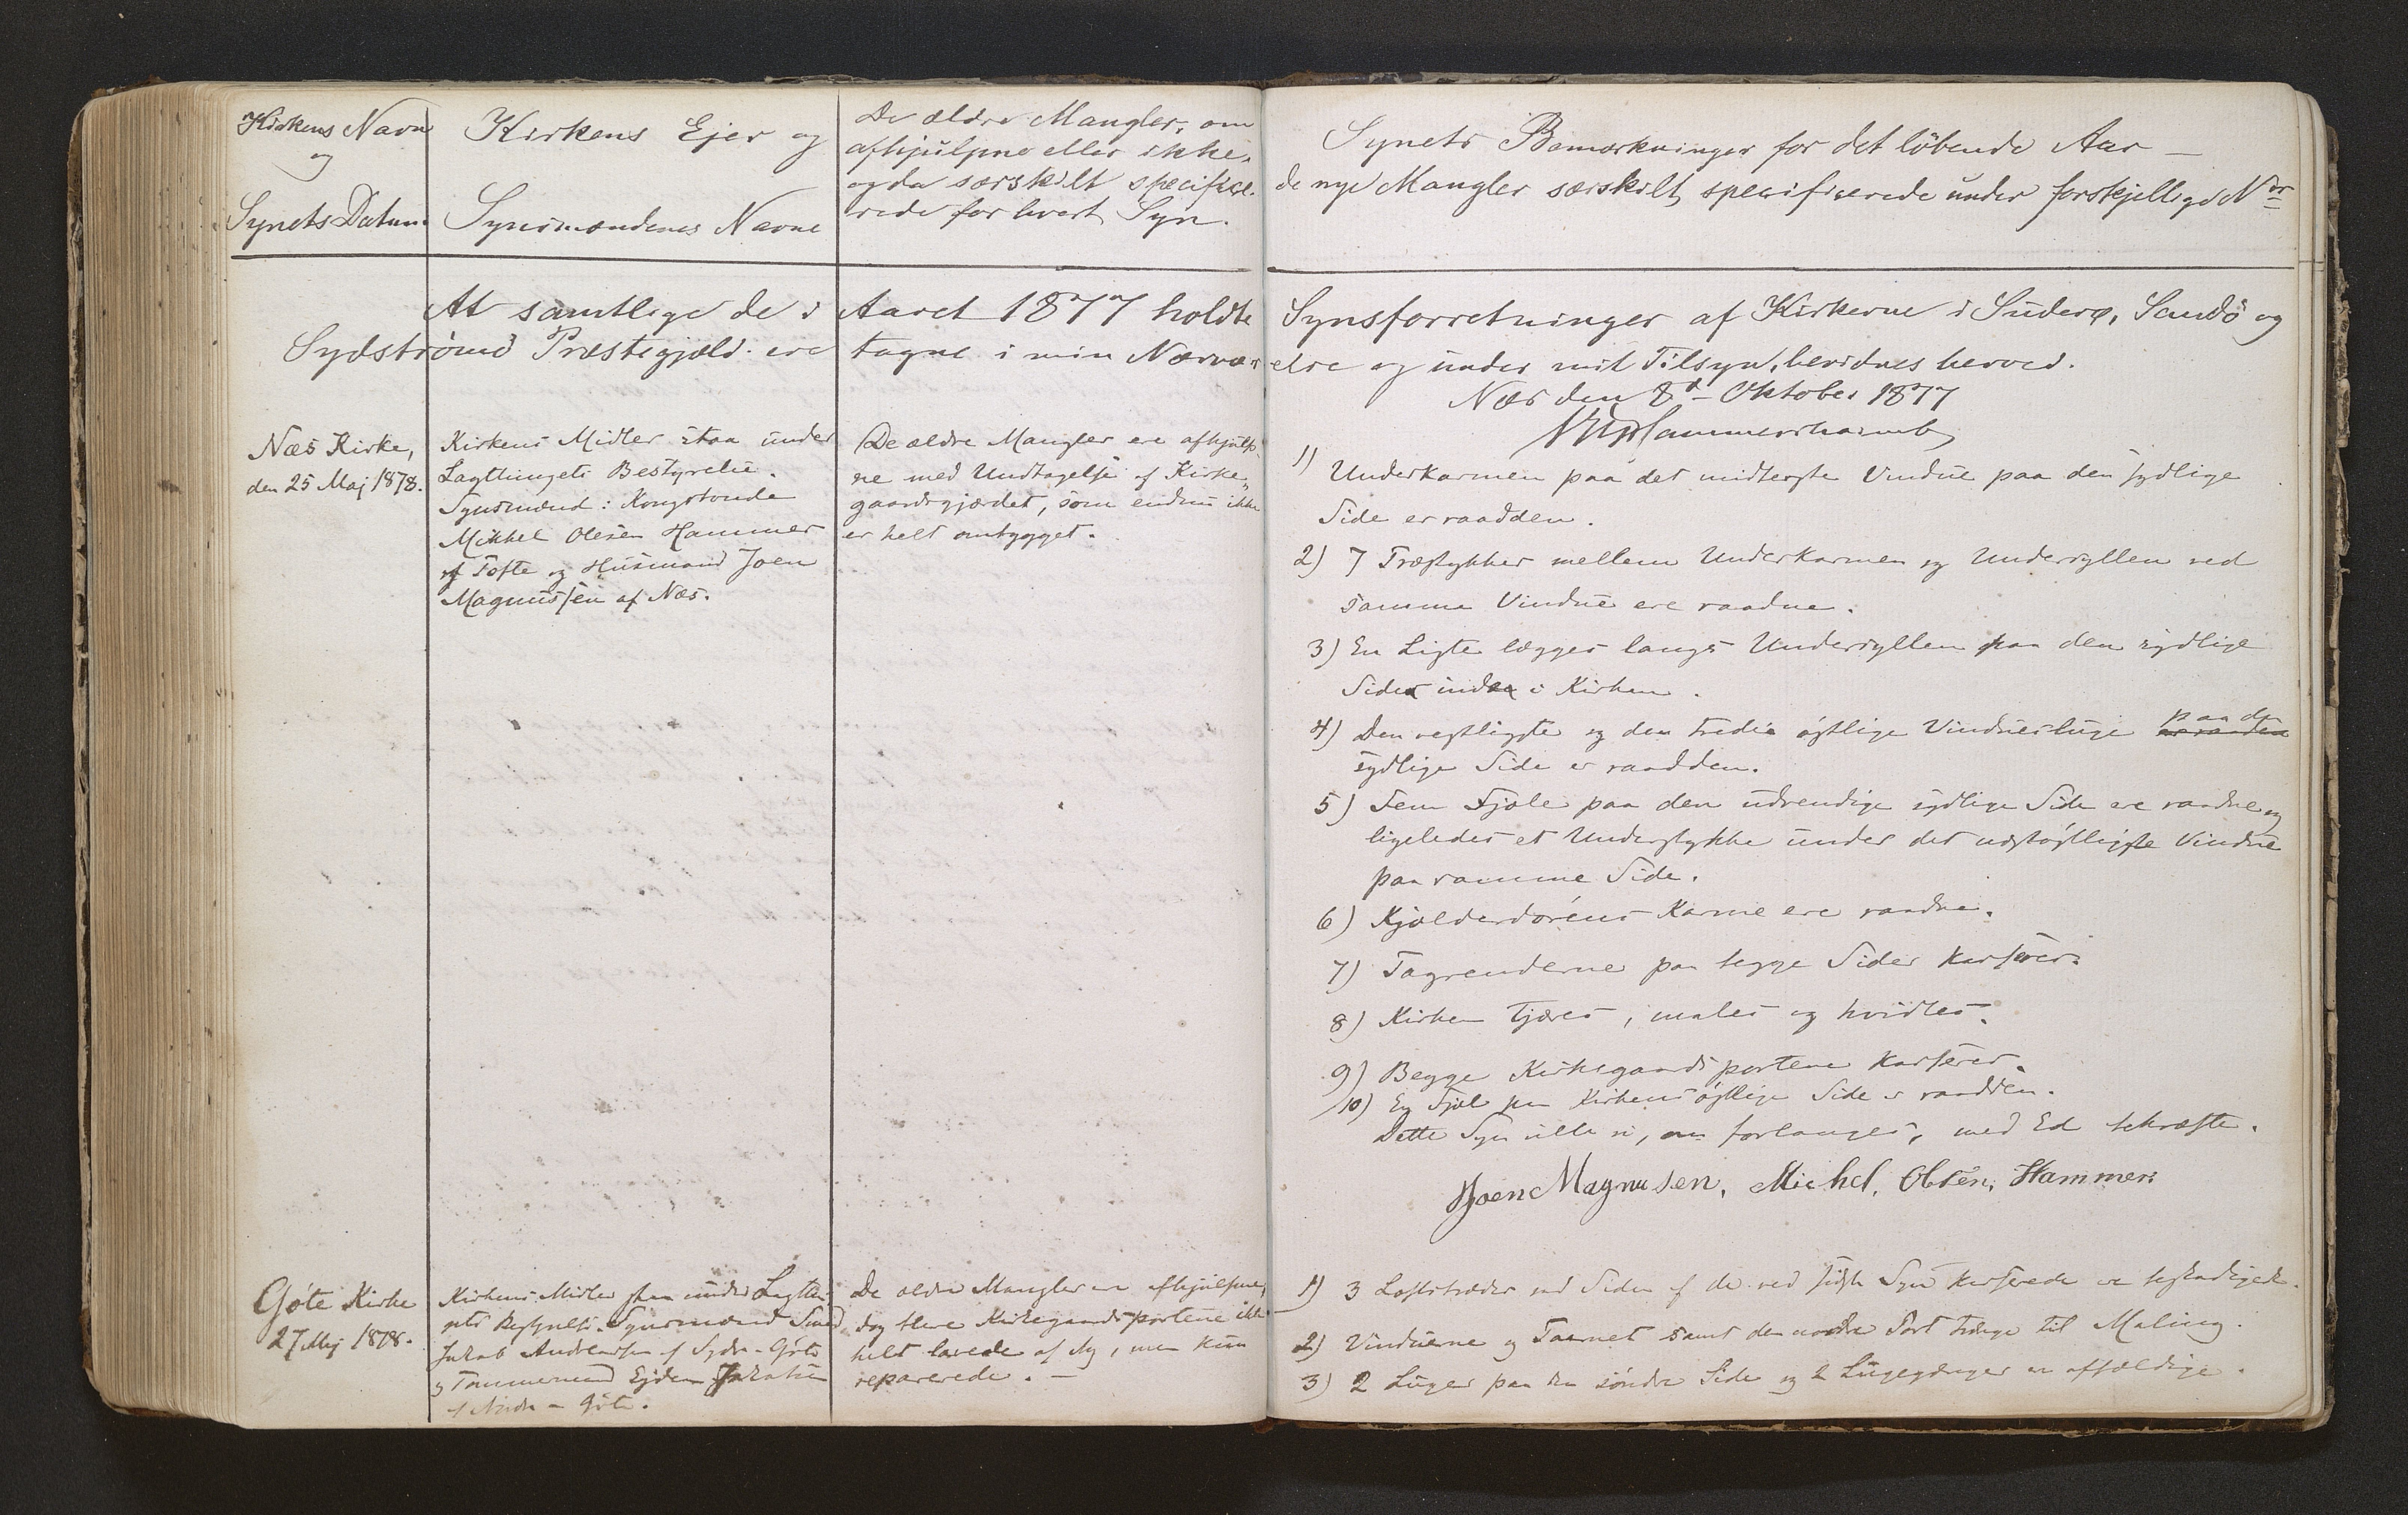 Kirkens Navn
og
Synets Datum.
Kirkens Ejer og
Synsmændenes Navne
De ældre Mangler, om
afhjulpne eller ikke,
og da særskilt specifice-
rede for hvert Syn.
Synets Bemærkninger for det löbende Aar —
de nye Mangler særskilt specificerede under forskjellige Nor
At samtlige de i Aaret 1877 holdte Synsforretninger af Kirkerne i Suderø, Sandö og
Sydstrømö Præstegjæld ere tagne i min Nærværelse og under mit Tilsyn, bevidnes herved.
Næs den 8d Oktober 1877
VUHammershaimb
Næs Kirke,
den 25 Maj 1878.
Kirkens Midler staa under
Lagthingets Bestyrelse.
Synsmænd: Kongsbonde
Mikkel Olesen Hammer
af Tofte og Husmand Joen
Magnussen af Næs.
De ældre Mangler ere afhjulp-
ne med Undtagelse af Kirke-
gaardsgjærdet, som endnu ikke
er helt ombygget.
1) Underkarmen paa det midterste Vindue paa den sydlige
Side er raadden.
2) 7 Træstykker mellem Underkarmen og Undersyllen ved
samme Vindue ere raadne.
3) En Ligte lægges langs Undersyllen paa den sydlige
Side inde i Kirken.
4) Den vestligste og den tredie østlige Vinduesluge paa den
sydlige Side er raadden.
5) Fem Fjæle paa den udvendige sydlige Side ere raadne og
ligeledes et Understykke under det nordøstligste Vindue
paa samme Side.
6) Kjælderdörens Karme ere raadne.
7) Tagrenderne paa begge Sider kasseres.
8) Kirken tjæres, males og hvidtes.
9) Begge Kirkegaardsportene kasseres.
10) En Fjæl paa Kirkens östlige Side er raadden.
Dette Syn ville vi, om forlanges, med Ed bekræfte.
Joen Magnusen, Michel, Olsen, Hammer.
Göte Kirke
27 Maj 1878.
Kirkens Midler staa under Lagthin-
gets Bestyrelse. Synsmænd Smed
Jakob Andreassen af Sydre-Göte
og Tømmermand Ejden Jakobsen
af Nordre-Göte.
De ældre Mangler ere afhjulpne,
dog blere Kirkegaardsportene ikke
helt lavede af Ny, men kun
reparerede. —
1) 3 Loftsbrædder ved Siden af de ved sidste Syn kasserede ere beskadigede.
2) Vinduerne og Taarnet samt den nordre Port trænge til Maling.
3) 2 Luger paa den söndre Side og 2 Lugegænger er affældige.